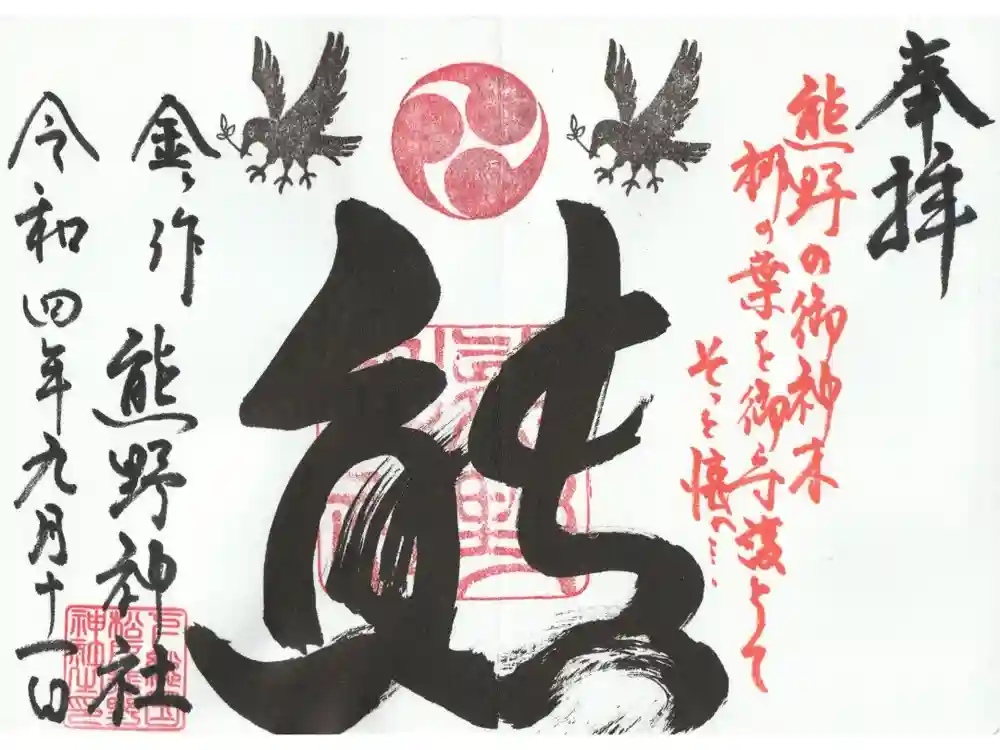 奉拝
熊野の御神木
梛の葉を御守護として
そっと懐へ…
熊
金ヶ作
熊野神社
令和四年九月十一日